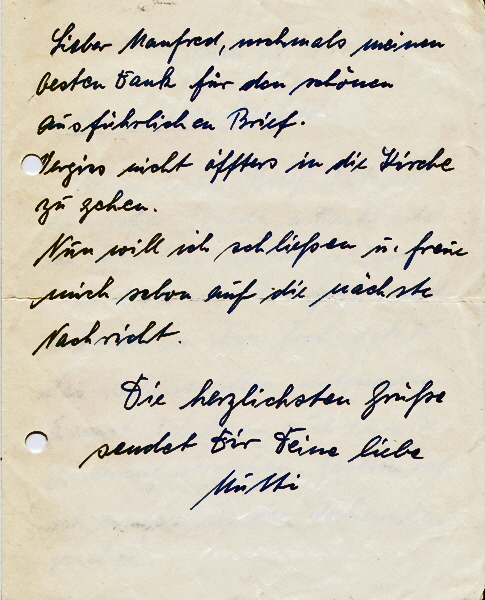 Lieber Manfred, nochmals meinen
besten Dank für den schönen
ausführlichen Brief.
Vergiss nicht öffters in die Kirche
zu gehen.
Nun will ich schließen u. freue
mich schon auf die nächste
Nachricht.
Die herzlichsten Grüße
sendet Dir Deine liebe
Mutti